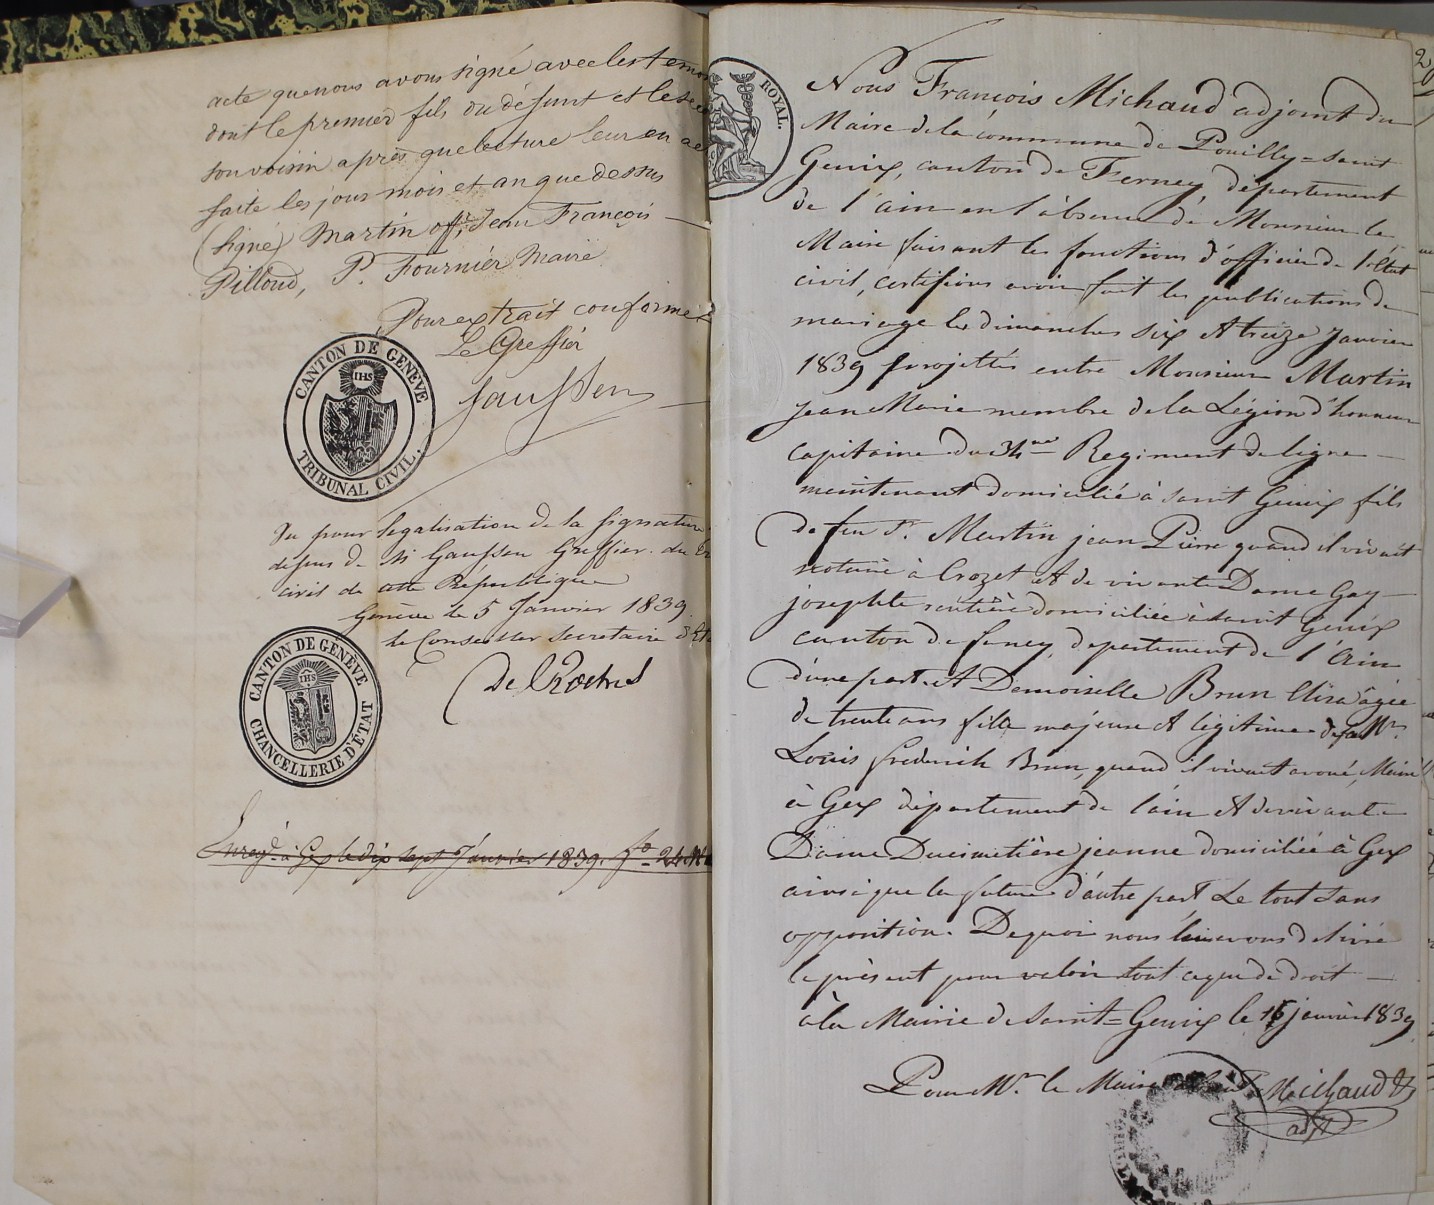 acte que nous avons signé avec les temoi
dont le premier fils du défunt et le sec
son voisin après que lecture leur en a e
faite les jours mois et an que dessus
(signé) Martin off. Jean François
Pilloud, P. Fournier Maire
Pour extrait conforme
Le Greffier
Gaussen
CANTON DE GENÈVE
IHS
TRIBUNAL CIVIL.
Vu pour legalisation de la signature
dessus de Mr Gaussen Greffier du Tr
civil de cette République
Genève le 5 Janvier 1839
le Conseiller Secretaire d'Et
De Roches
CANTON DE GENÈVE
IHS
CHANCELLERIE D'ÉTAT
Enregé à Gex le dix sept Janvier 1839. fo 24
ROYAL.
Nous François Michaud adjoint du
Maire de la commune de Pouilly=saint
Genix, canton de Ferney, département
de l'ain en l'absence de Monsieur le
Maire faisant les fonctions d'officier de l'état
civil, certifions avoir fait les publications de
mariage les dimanches six et treize Janvier
1839 projettés entre Monsieur Martin
Jean Marie membre de la Légion d'honneur
capitaine du 34me Regiment de ligne
maintenant domicilié à saint Genix fils
de feu Sr. Martin jean Pierre quand il vivait
notaire à Crozet et de vivante Dame Gay
josephte rentière domiciliée à saint Genix
canton de ferney, departement de l'Ain
d'une part et Demoiselle Brun Elisa âgée
de trente ans fille majeure et légitime de feu Mr.
Louis frederich Brun, quand il vivait avoué, Maire
à Gex département de l'ain et de vivante
Dame Ducimetière jeanne domiciliée à Gex
ainsi que la future d'autre part Le tout sans
opposition. De quoi nous avons delivré
le présent pour valoir tout ce que de droit
à la Mairie de Saint=Genix le 15 janvier 1839
Pour Mr. le Maire Michaud
adjt